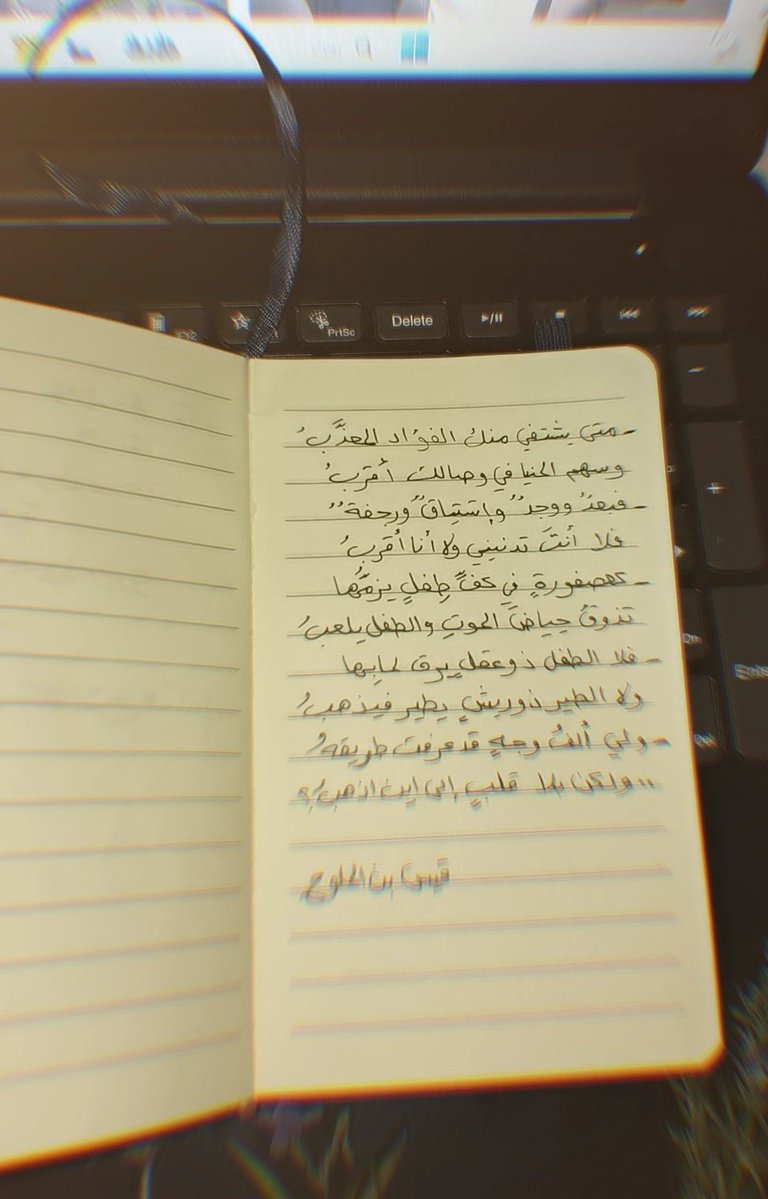 Delete
PrtSc
- متى يشتفي منك الفؤاد المعذَّبُ
وسهم المنايا في وصالك أقربُ
- فبعدٌ ووجدٌ وإشتياقٌ ورجفةٌ
فلا أنتَ تدنيني ولا أنا أقربُ
- كعصفورةٍ في كفِّ طفلٍ يزمُّها
تذوقُ حياضَ الموتِ والطفل يلعبُ
- فلا الطفل ذو عقلٍ يرق لمابِها
ولا الطير ذو ريشٍ يطير فيذهبُ
- ولي ألفُ وجهٍ قد عرفت طريقهُ
.. ولكن بلا قلبٍ إلى اين اذهبُ؟
قيس بن الملوح